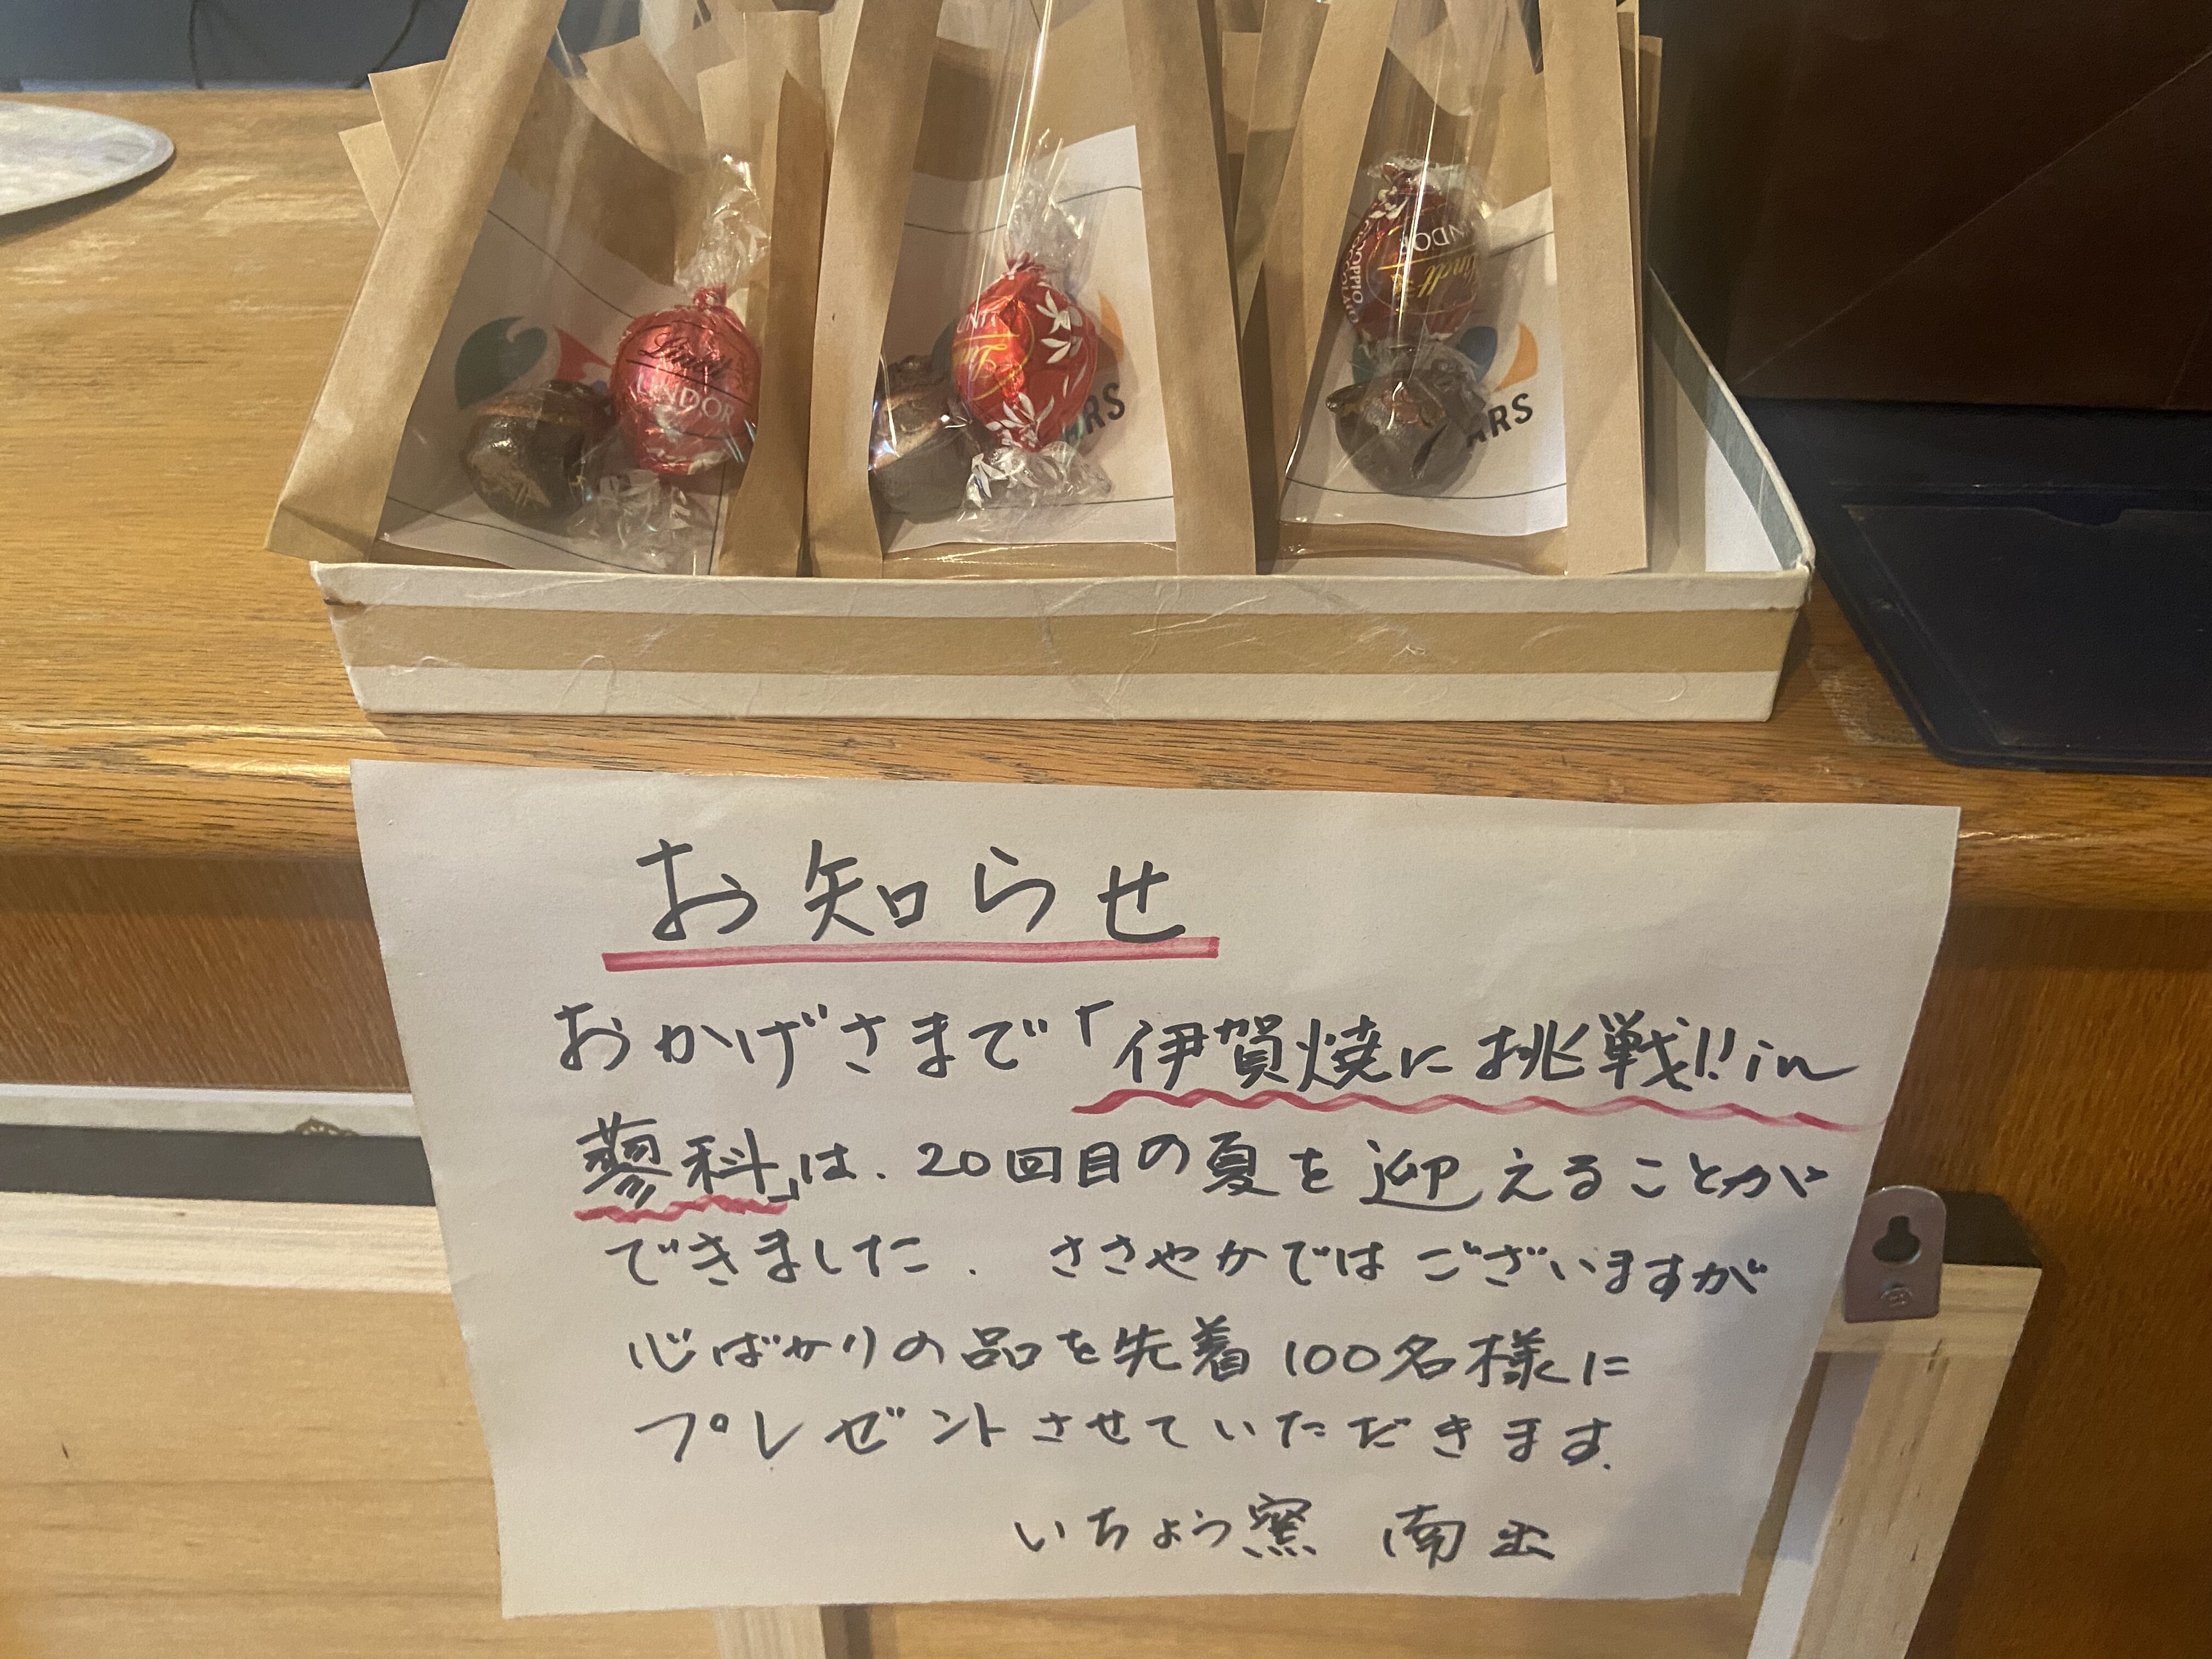 Lindt
LINDOR
Lindt
LINDOR
ARS
ARS
お知らせ
おかげさまで「伊賀焼に挑戦!!in
蓼科」は、20回目の夏を迎えることが
できました. ささやかではございますが
心ばかりの品を先着100名様に
プレゼントさせていただきます.
いちょう窯 南出